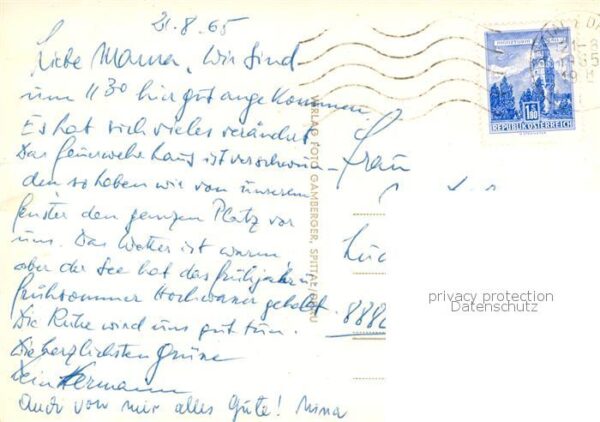 21.8.65
Liebe Mama, Wir sind
um 11 30 hier gut angekommen.
Es hat sich vieles verändert
Das Feuerwehrhaus ist verschwun-
den so haben wir von unserem
Fenster den ganzen Platz vor
uns. Das Wetter ist warm,
aber der See hat das Frühjahr u
Frühsommer Hochwasser gehabt.
Die Ruhe wird uns gut tun.
Die herzlichsten Grüße
Dein Hermann
Auch von mir alles Gute! Mina
VERLAG FOTO GAMBERGER, SPITTAL/DRAU
REPUBLIK ÖSTERREICH
1.80
Frau
privacy protection
Datenschutz